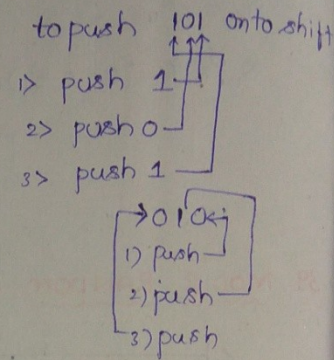 to push 101 onto shift
1> push 1
2> push 0
3> push 1
010
1) push
2) push
3) push